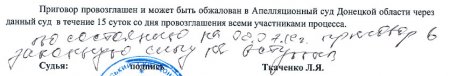 Приговор провозглашен и может быть обжалован в Апелляционный суд Донецкой области через
данный суд в течение 15 суток со дня провозглашения всеми участниками процесса.
по состоянию на приговор в
законную силу не вступил
Судья: подпись Ткаченко Л.Я.